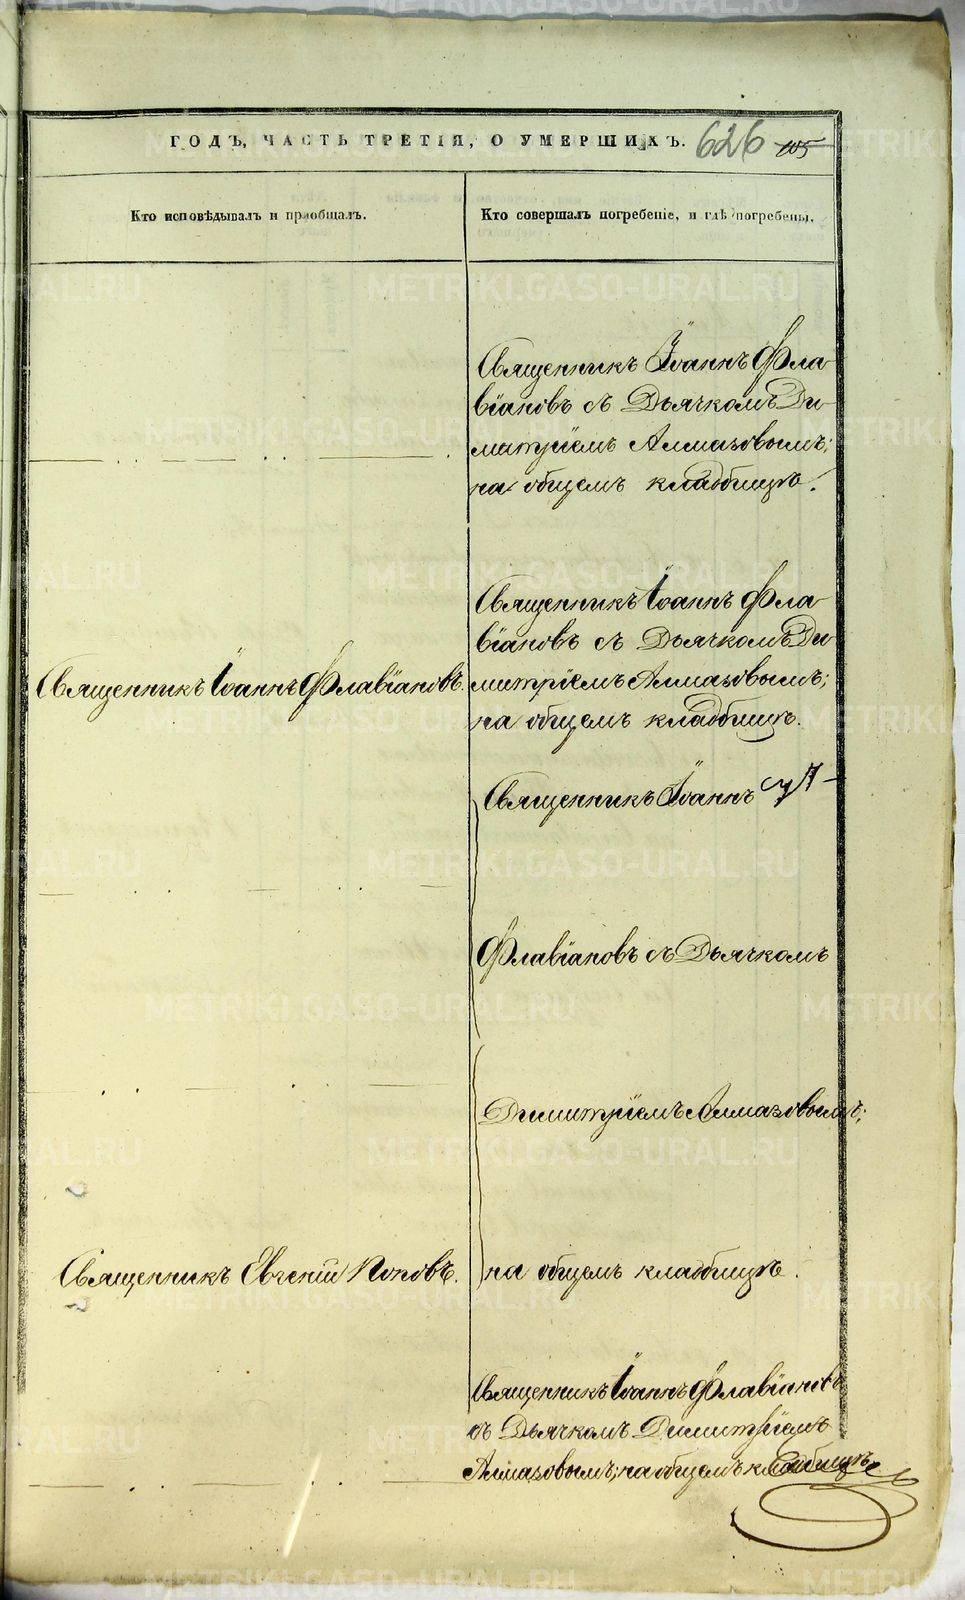 ГОДЪ, ЧАСТЬ ТРЕТІЯ, О УМЕРШИХЪ. 626 105
Кто исповѣдывалъ и пріобщалъ.
Кто совершалъ погребеніе, и гдѣ погребены.
Священникъ Іоаннъ Фла
віановъ съ Дьячкомъ Ди
митріемъ Алмазовымъ;
на общемъ кладбищѣ.
Священникъ Іоаннъ Флавіановъ.
Священникъ Іоаннъ Фла
віановъ съ Дьячкомъ Ди
митріемъ Алмазовымъ;
на общемъ кладбищѣ.
Священникъ Іоаннъ
Флавіановъ съ Дьячкомъ
Димитріемъ Алмазовымъ;
Священникъ Евгеній Поповъ.
на общемъ кладбищѣ.
Священникъ Іоаннъ Флавіановъ
съ Дьячкомъ Димитріемъ
Алмазовымъ; на общемъ кладбищѣ
METRIKI.GASO-URAL.RU